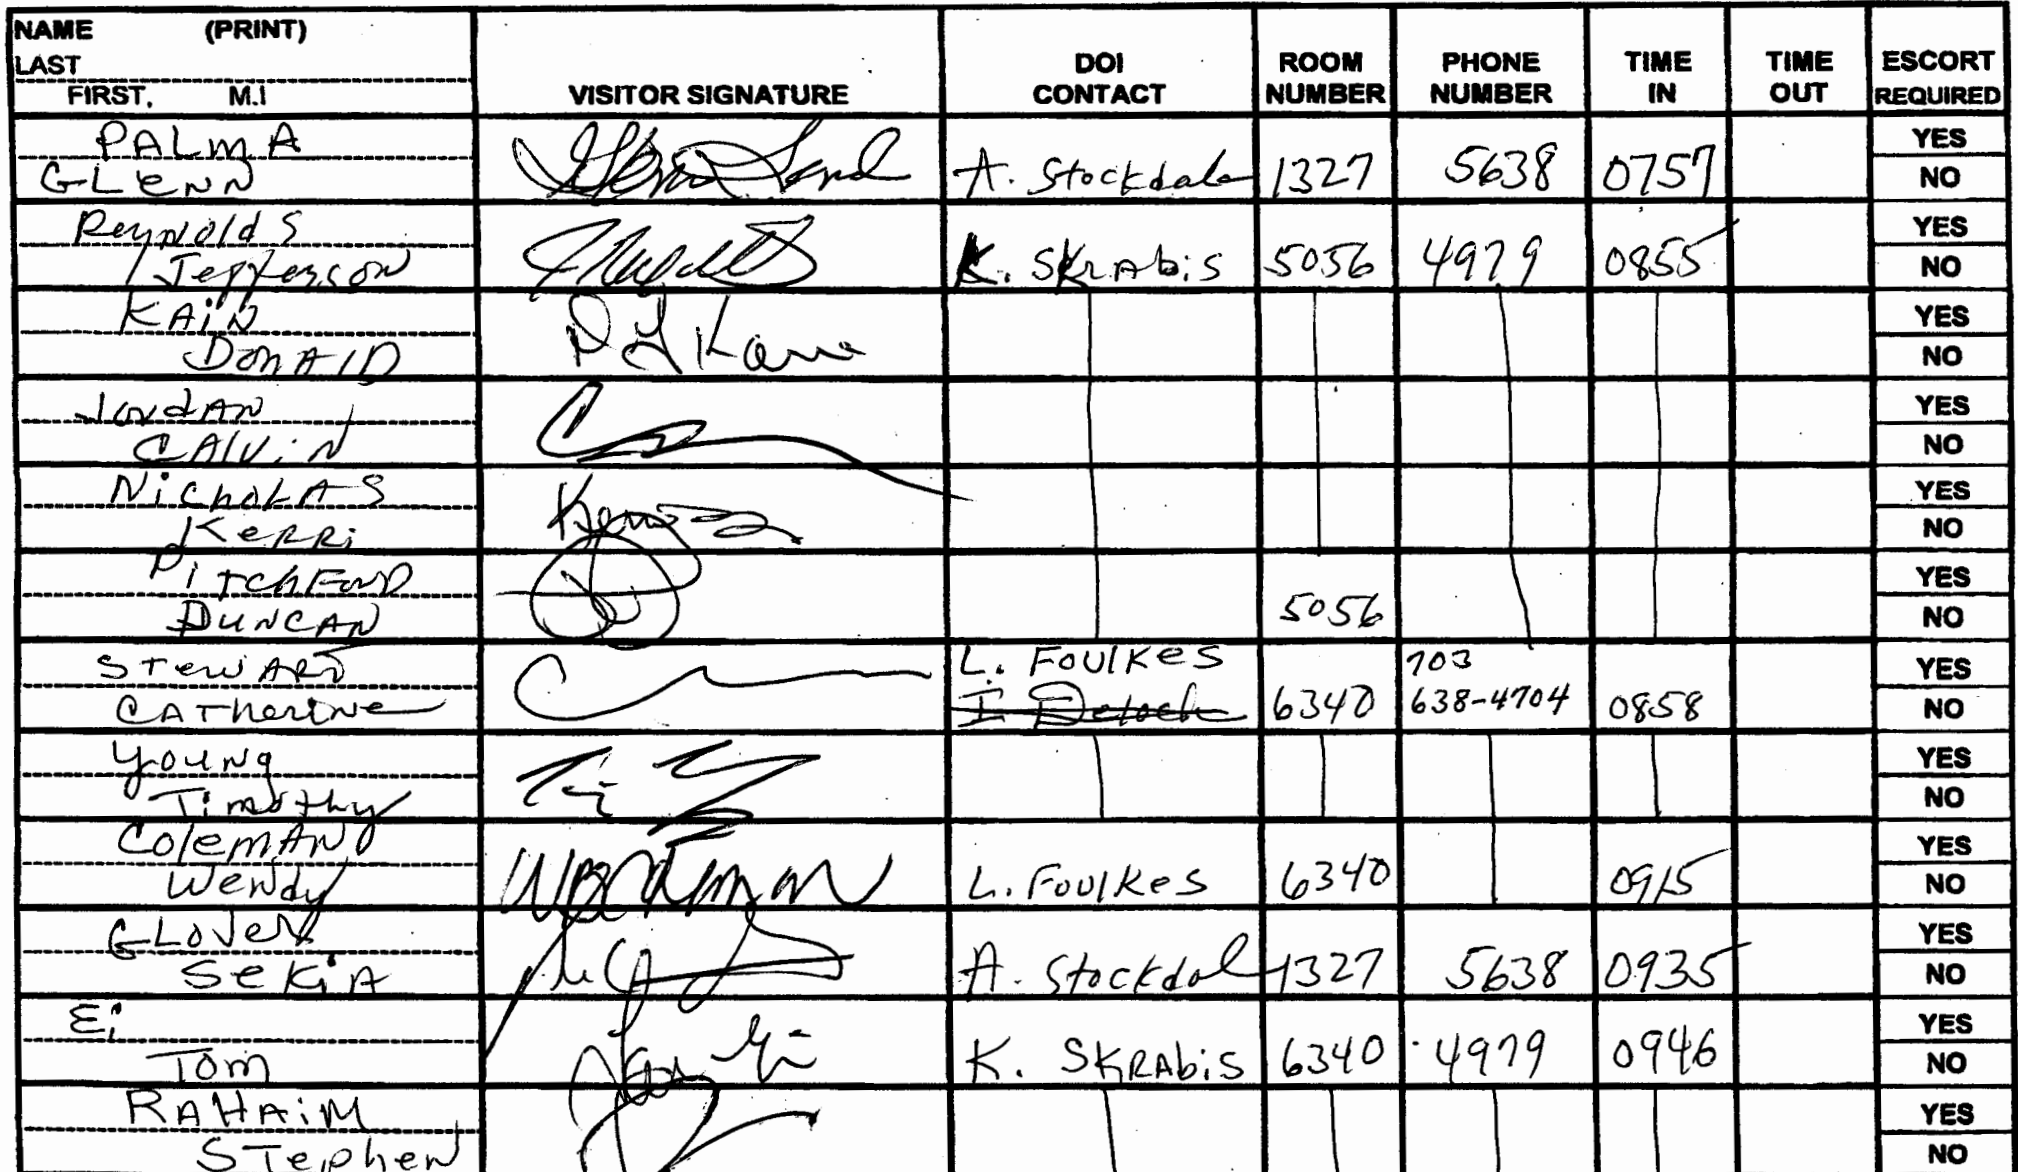 NAME (PRINT)
LAST
FIRST, M.I
VISITOR SIGNATURE
DOI CONTACT
ROOM NUMBER
PHONE NUMBER
TIME IN
TIME OUT
ESCORT REQUIRED
PALMA
GLENN
A. Stockdale 1327 5638 0757
YES
NO
Reynolds
Jefferson
K. SKRAbis 5056 4979 0855
YES
NO
KAiN
DONAlD
YES
NO
JordAN
CAlviN
YES
NO
NichoLAS
KeRRi
YES
NO
PiTchFord
DUNCAN
5056
YES
NO
STewART
CATherine
L. FOUlKes
I Deloch
6340
703
638-4704
0858
YES
NO
Young
Timothy
YES
NO
ColemAN
Wendy
L. FOUlKes 6340 0915
YES
NO
GLover
SeKiA
A. Stockdal 1327 5638 0935
YES
NO
Ei
Tom
K. SKRAbis 6340 4979 0946
YES
NO
RAHAiM
STephen
YES
NO